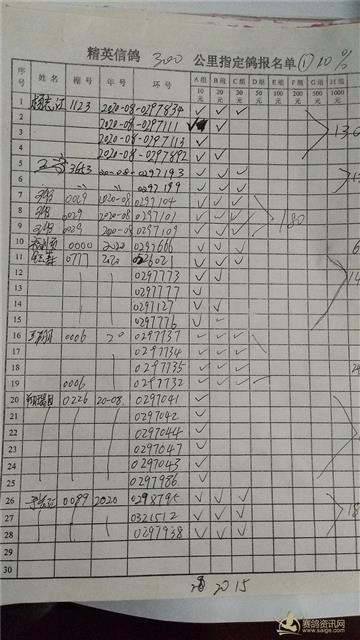 精英信鸽 300 公里指定鸽报名单 ① 10%
序号 姓名 棚号 年号 环号 A组 10元 B组 20元 C组 30元 D组 50元 E组 100元 F组 200元 G组 500元 H组 1000元
1 杨志江 1123 2020-08-0297834 ✓ ✓ ✓
2 2020-08-0297111 ✓ ✓
3 2020-08-0297113 ✓
4 2020-08-0297892 ✓ ✓
5 3653 20-08-0297193 ✓ ✓ ✓
6 〃 〃 0297199 ✓ ✓ ✓
7 0029 2020-08 0297104 ✓ ✓ ✓
8 0029 2020-08 0297101 ✓ ✓ ✓ 180
9 0029 2020-08 0297109 ✓ ✓ ✓
10 0000 2020 0297666 ✓ ✓ ✓
11 0777 2020 026021 ✓ ✓ ✓
12 0297773 ✓ ✓
13 0297777 ✓
14 0297127 ✓ ✓
15 0297776 ✓ ✓
16 0006 20 0297737 ✓ ✓ ✓
17 0297734 ✓ ✓ ✓
18 0297735 ✓ ✓ ✓
19 0006 0297732 ✓ ✓ ✓
20 0226 20-08 0297041 ✓
21 0297042 ✓
22 0297044 ✓
23 0297047 ✓
24 0297043 ✓
25 0297986 ✓
26 0089 2020 0298795 ✓ ✓ ✓
27 0321512 ✓ ✓ ✓
28 0297938 ✓ ✓ ✓
29
30
20 15
赛鸽资讯网
www.saige.com